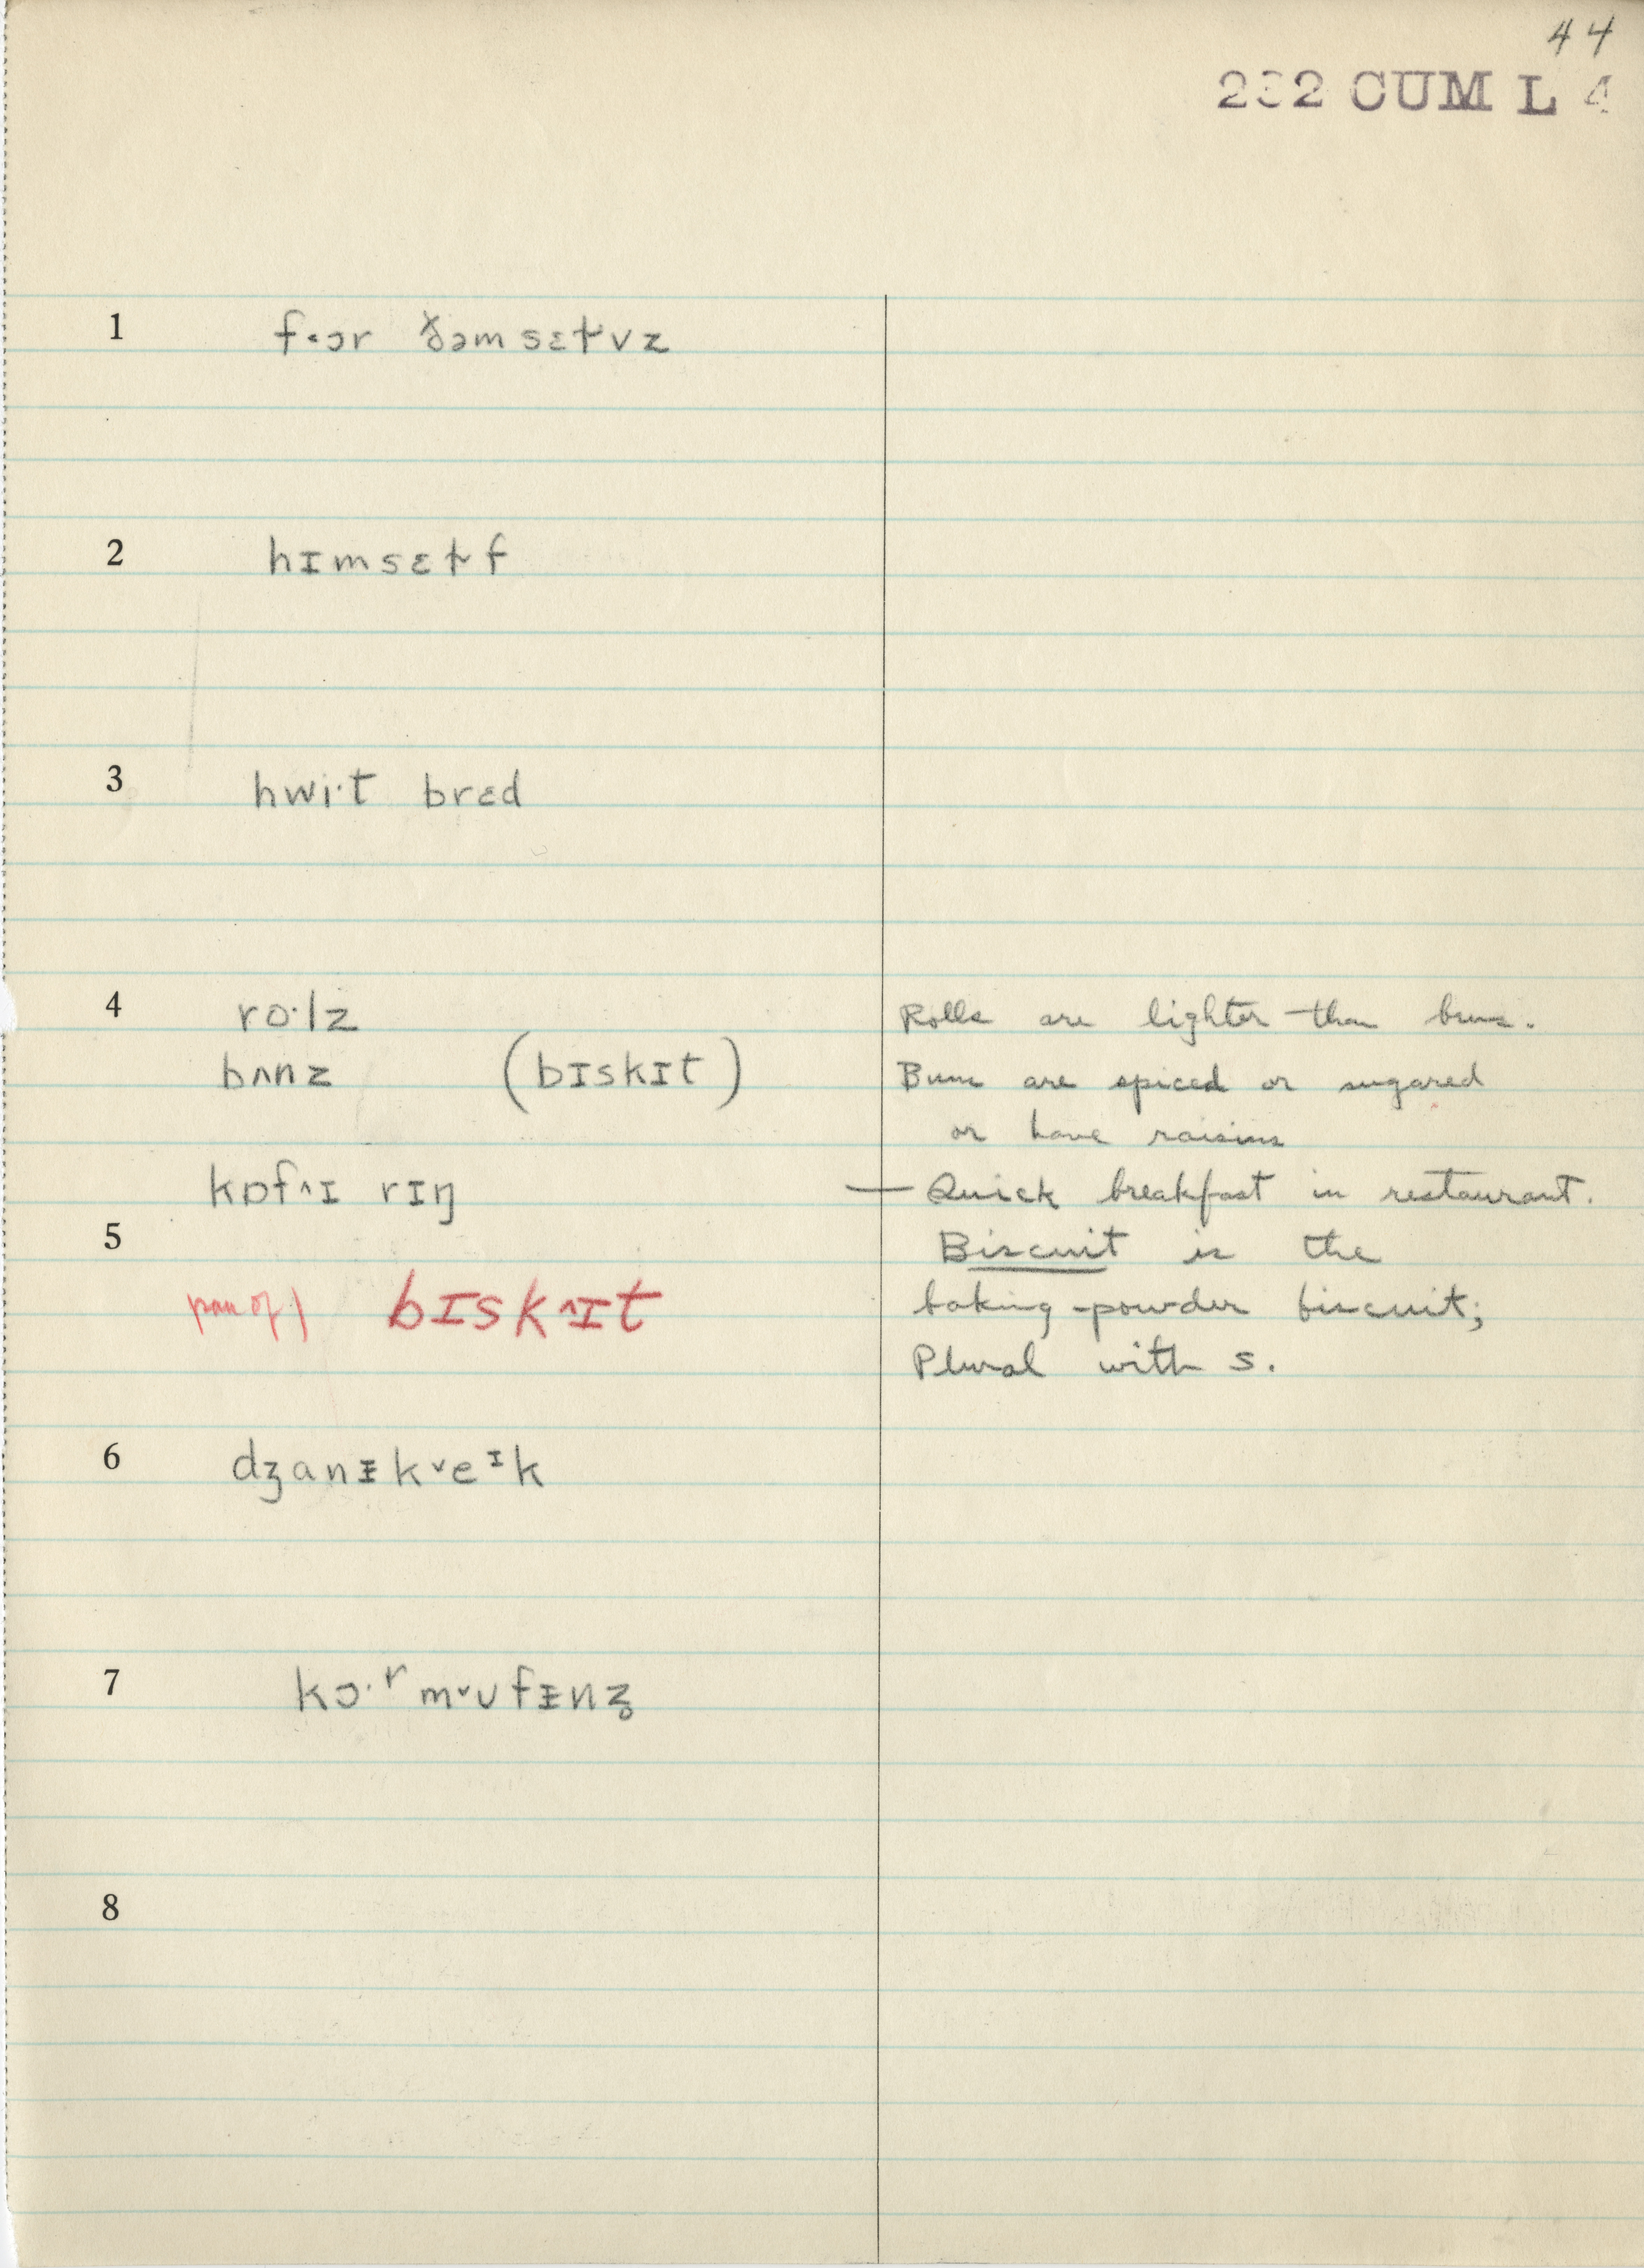 44
232 CUM L 4
1 f˂ɔr ðəmsɛɫvz
2 hɪmsɛɫf
3 hwi·t brɛd
4 ro·lz Rolls are lighter than buns.
bʌnz (bɪskɪt) Buns are spiced or sugared
or have raisins
kɒf^ɪ rɪŋ — Quick breakfast in restaurant.
5 Biscuit is the
pan of) bɪsk^ɪt baking-powder biscuit;
Plural with s.
6 dʒanᵻkˇeᶦk
7 kɔ·ʳmˇʊfᵻnz̥
8